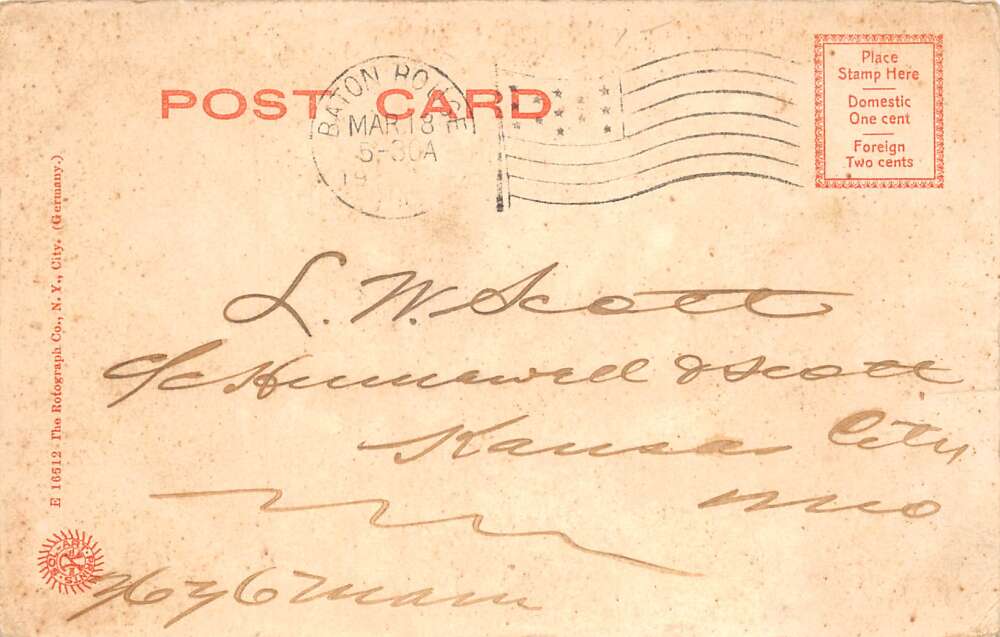 POST CARD
BATON ROUGE
MAR 18
5-30A
19
Place
Stamp Here
Domestic
One cent
Foreign
Two cents
E 16512 The Rotograph Co., N. Y., City. (Germany.)
L. W. Scott
c/c Hunnewell & Scott
Kansas City
Mo
SOL-ART PRINTS
Main